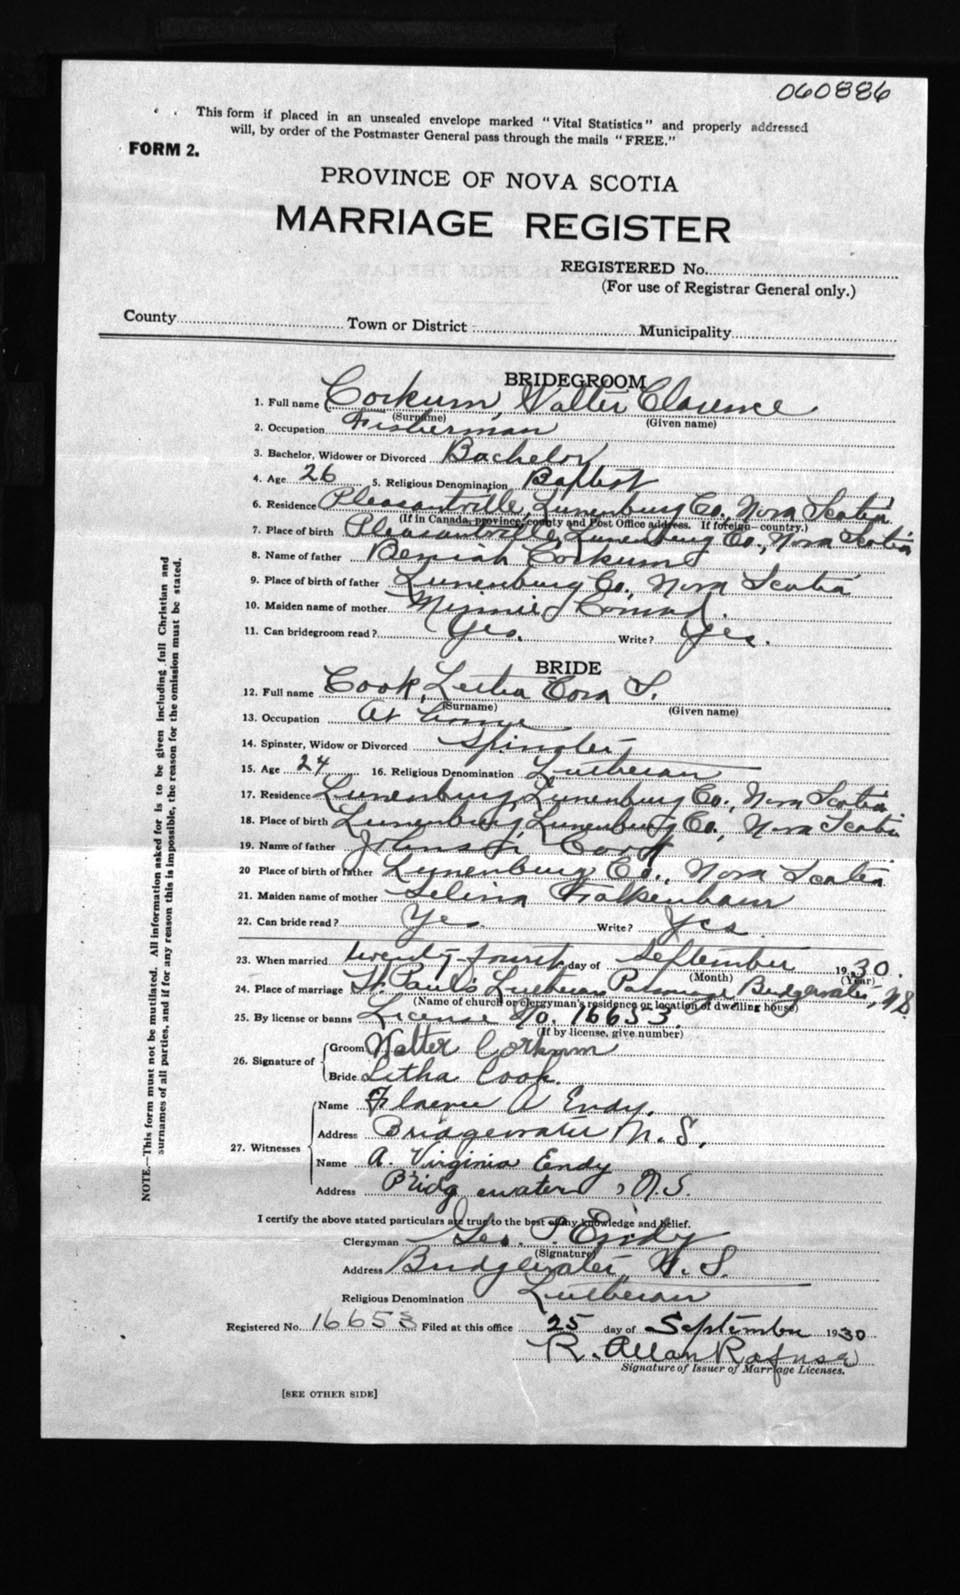 060886
This form if placed in an unsealed envelope marked "Vital Statistics" and properly addressed
will, by order of the Postmaster General pass through the mails "FREE."
FORM 2.
PROVINCE OF NOVA SCOTIA
MARRIAGE REGISTER
REGISTERED No.
(For use of Registrar General only.)
County Town or District Municipality
BRIDEGROOM
1. Full name Corkum, Walter Clarence
(Surname) (Given name)
2. Occupation Fisherman
3. Bachelor, Widower or Divorced Bachelor
4. Age 26 5. Religious Denomination Baptist
6. Residence Pleasantville, Lunenburg Co., Nova Scotia
(If in Canada, province, county and Post Office address. If foreign—country.)
7. Place of birth Pleasantville, Lunenburg Co., Nova Scotia
8. Name of father Beniah Corkum
9. Place of birth of father Lunenburg Co., Nova Scotia
10. Maiden name of mother Minnie Conrad.
11. Can bridegroom read? Yes. Write? Yes.
BRIDE
12. Full name Cook, Letha Cora S.
(Surname) (Given name)
13. Occupation At home
14. Spinster, Widow or Divorced Spinster
15. Age 24 16. Religious Denomination Lutheran
17. Residence Lunenburg, Lunenburg Co., Nova Scotia
18. Place of birth Lunenburg, Lunenburg Co., Nova Scotia
19. Name of father Johnson Cook
20 Place of birth of father Lunenburg Co., Nova Scotia
21. Maiden name of mother Selina Falkenham
22. Can bride read? Yes. Write? Yes.
23. When married twenty-fourth day of September 1930.
(Month) (Year)
24. Place of marriage St. Paul's Lutheran Parsonage Bridgewater, N.S.
(Name of church or clergyman's residence or location of dwelling house)
25. By license or banns License No. 16653.
(If by license, give number)
26. Signature of Groom Walter Corkum
Bride Letha Cook.
27. Witnesses
Name A Endy.
Address Bridgewater N. S.
Name A. Virginia Endy
Address Bridgewater, N.S.
I certify the above stated particulars are true to the best of my knowledge and belief.
Clergyman Geo. P. Endy
(Signature)
Address Bridgewater, N. S.
Religious Denomination Lutheran
Registered No. 16653 Filed at this office 25 day of September 1930
R. Allan Rafuse
Signature of Issuer of Marriage Licenses.
[SEE OTHER SIDE]
NOTE.—This form must not be mutilated. All information asked for is to be given including full Christian and
surnames of all parties, and if for any reason this is impossible, the reason for the omission must be stated.